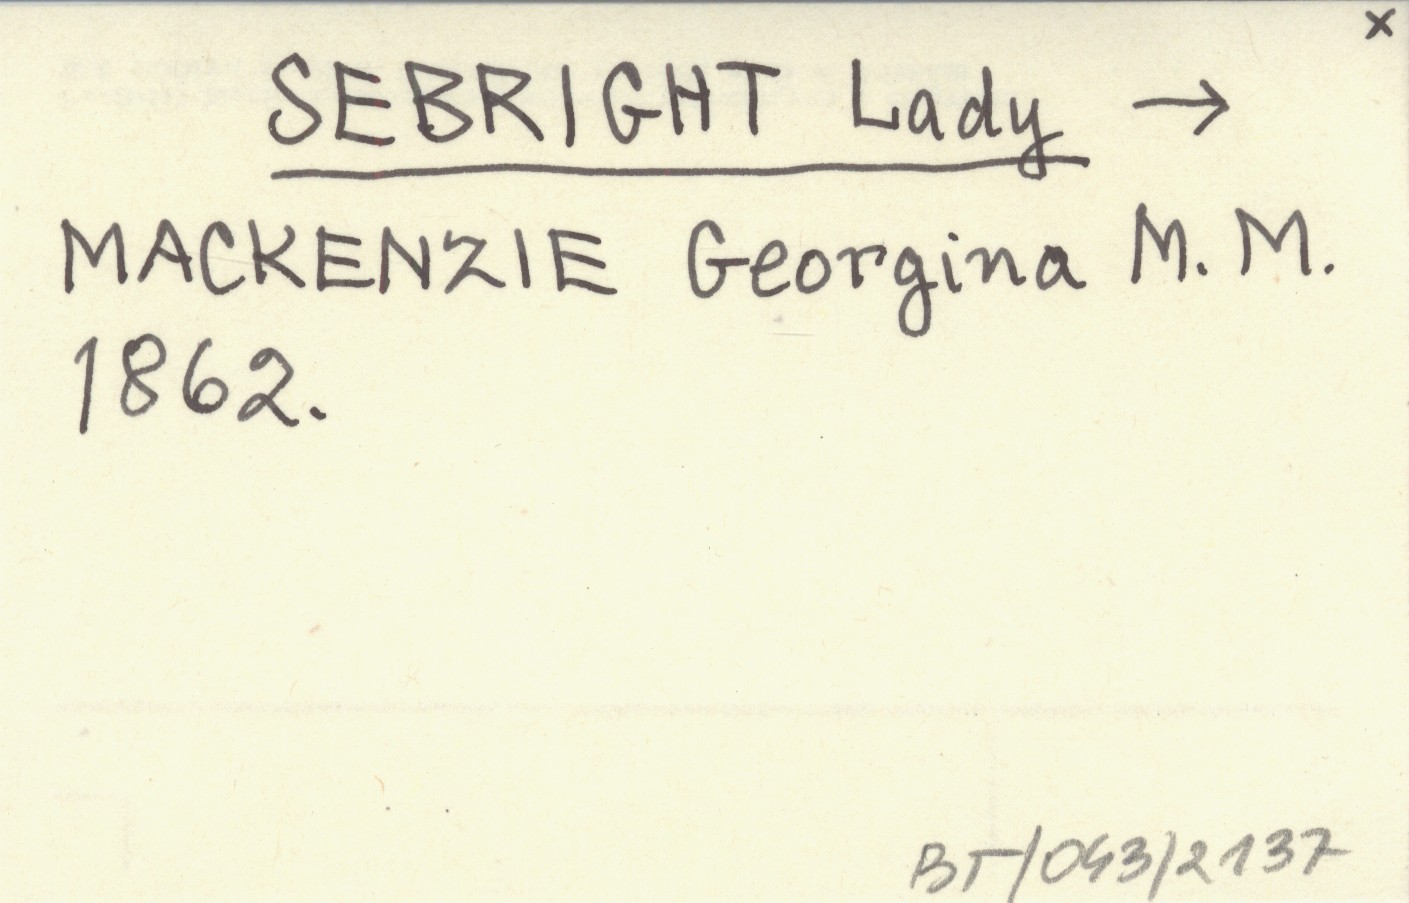 x
SEBRIGHT Lady →
MACKENZIE Georgina M. M.
1862.
BT/043/2137